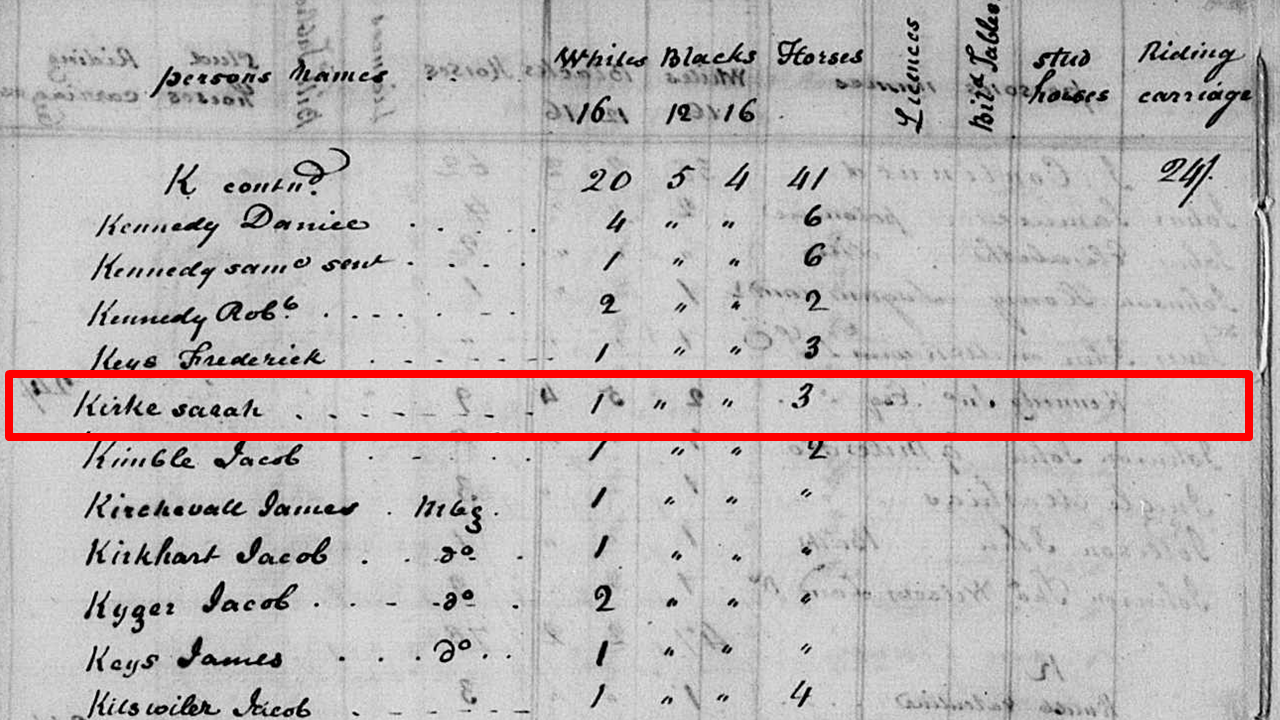 persons names Whites Blacks Horses Licences Bill.d Tables stud horses Riding carriage
16 12 16
K contnd. 20 5 4 41 24/.
Kennedy Daniel . . . . . 4 " " 6
Kennedy . . . . 1 " " 6
Kennedy Rob.t . . - - - - - 2 " " 2
Keys Frederick . - - - - 1 " " 3
Kirke sarah . . . - - - - - 1 " " 3
Kimble Jacob . - - - - 1 " " 2
Kirchevall James . . 1 " " "
Kirkhart Jacob . . do . 1 " " "
Kyger Jacob . . - - do . 2 " " "
Keys James . . . do . . 1 " " "
Kitswiler Jacob . - - - - - 1 " " 4